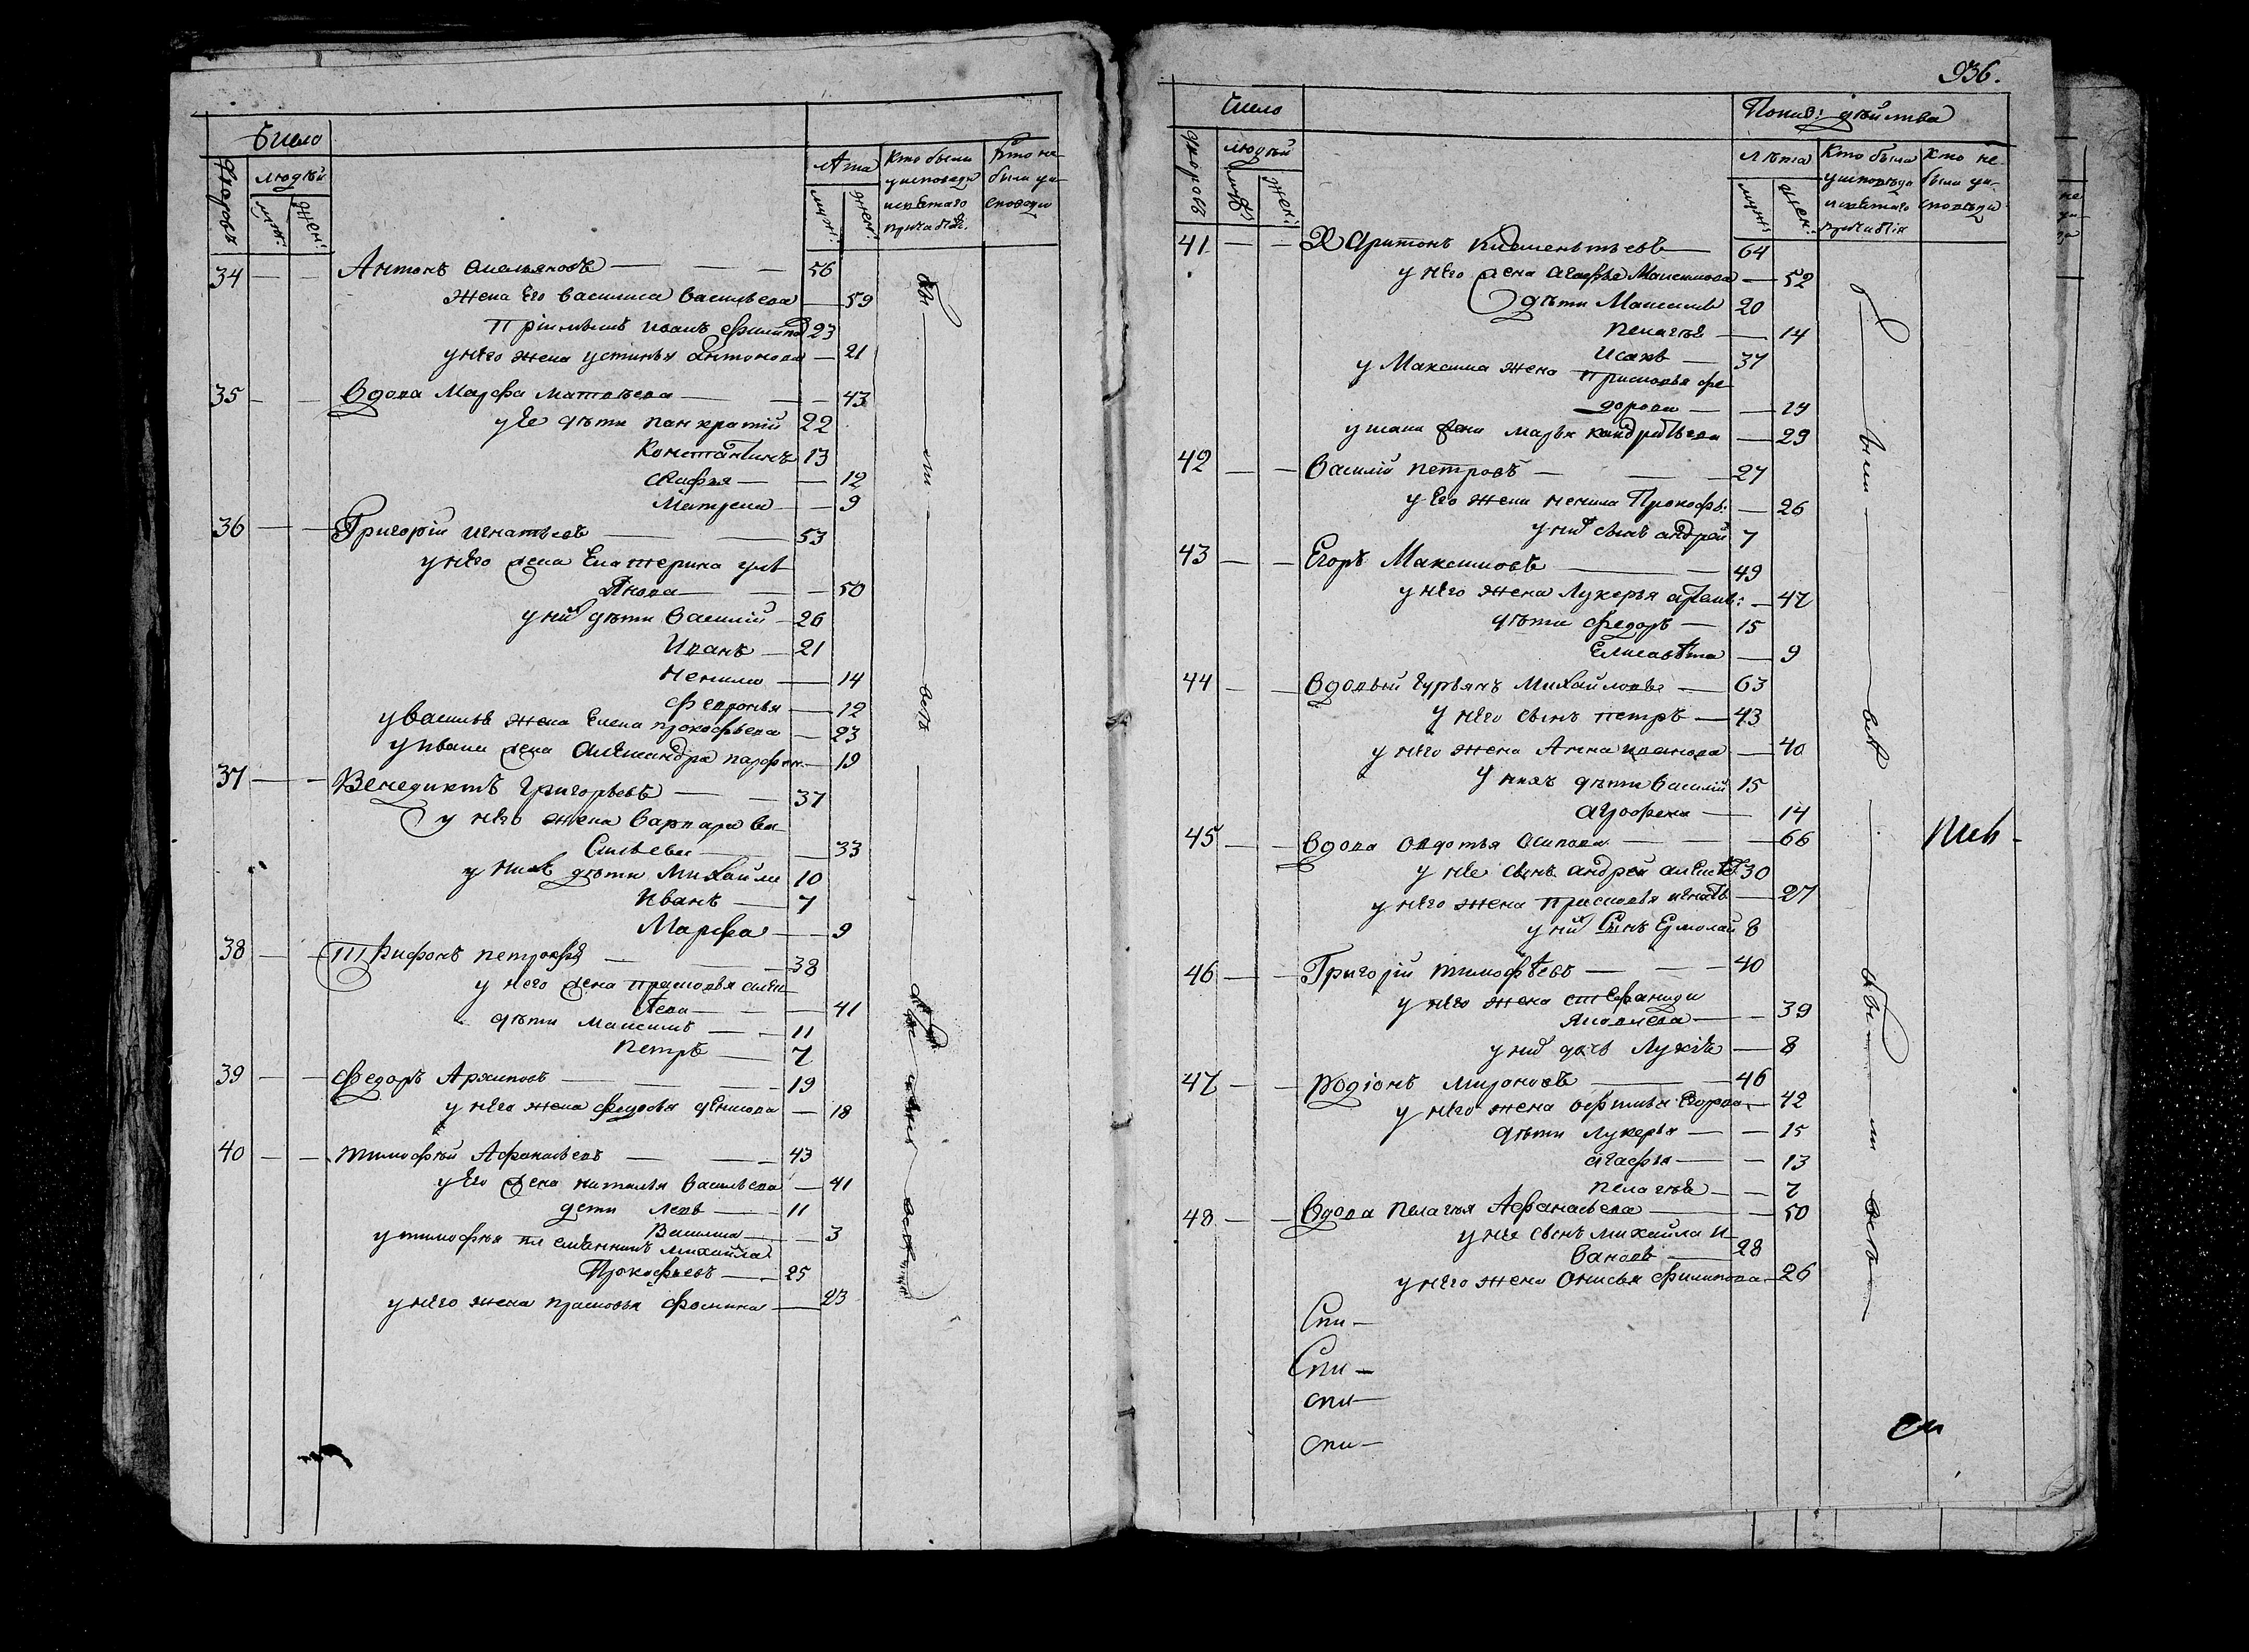 Число
Дворовъ
людей
муж:
жен:
лѣта
муж:
жен:
Кто были
у исповеди
и святаго
причастія.
Кто не
были у ис
поведи
34 Антонъ Омельяновъ 56
жена Его Василиса Васильева 59
Пріимышъ Иванъ Филипов 23
у нѣго жена устинья Антонова 21
35 Вдова Марфа Матвѣева 43
у Ее дѣти панкратій 22
Константинъ 13
12
Матрена 9
36 Григорій Игнатьевъ 53
у нѣго жена Екатерина улья
нова 50
у них дѣти Василій 26
Иванъ 21
Ненила 14
Февронья 12
у Василья жена Елена прокофьева 23
у Ивана жена Александра парфен. 19
37 Венедиктъ Григорьевъ 37
у нѣго жена Варвара Ва
сильева 33
у нихъ дѣти Михайла 10
Иванъ 7
Марфа 9
38 Трифонъ петровъ 38
у него жена прасковья
41
дѣти Максимъ 11
Петръ 7
39 Федоръ Архиповъ 19
у нѣго жена федосья денисова 18
40 тимофѣй Афонасьевъ 43
у Его жена наталья Васильева 41
дети левъ 11
Василиса 3
у тимофѣя племянникъ михайла
Прокофьевъ 25
у нѣго жена прасковья фомина 23
936.
Число
Дворовъ
людѣй
муж:
жен:
Покив: дѣйства
лѣта
муж:
жен:
Кто были
у исповѣди
и святаго
причастія
Кто не
были у ис
повѣди
41 Харитонъ Климентьевъ 64
у нѣго жена Агафья Максимова 52
дѣти Максимъ 20
пелагѣя 14
Исакъ 37
у Максима жена Прасковья фе
дорова 19
у исака жена марья кондратьева 29
42 Василій петровъ 27
у Его жена ненила Прокофь: 26
у них сынъ андрей 7
43 Егоръ Максимовъ 49
у нѣго жена Лукерья 47
дѣти федоръ 15
Елисавѣта 9
44 Вдовый Гурьянъ Михайловъ 63
у нѣго сынъ петръ 43
у нѣго жена Анна иванова 40
у нихъ дѣти Василій 15
Агрофена 14
45 Вдова Овдотья Осипова 66
у нѣе сынъ андрей алексѣев 30
у нѣго жена прасковья игнать 27
у них Сынъ Ермолай 8
46 Григорій тимофѣевъ 40
у нѣго жена стефанида
Яковлева 39
у них дочь Лукія 8
47 Родіонъ мироновъ 46
у нѣго жена Егорова 42
дѣти лукерья 15
агафья 13
пелагѣя 7
48 Вдова пелагья Афанасьева 50
у нѣе сынъ михайла и
вановъ 28
у нѣго жена Онисья филипова 26
Спи
Спи
спи
спи